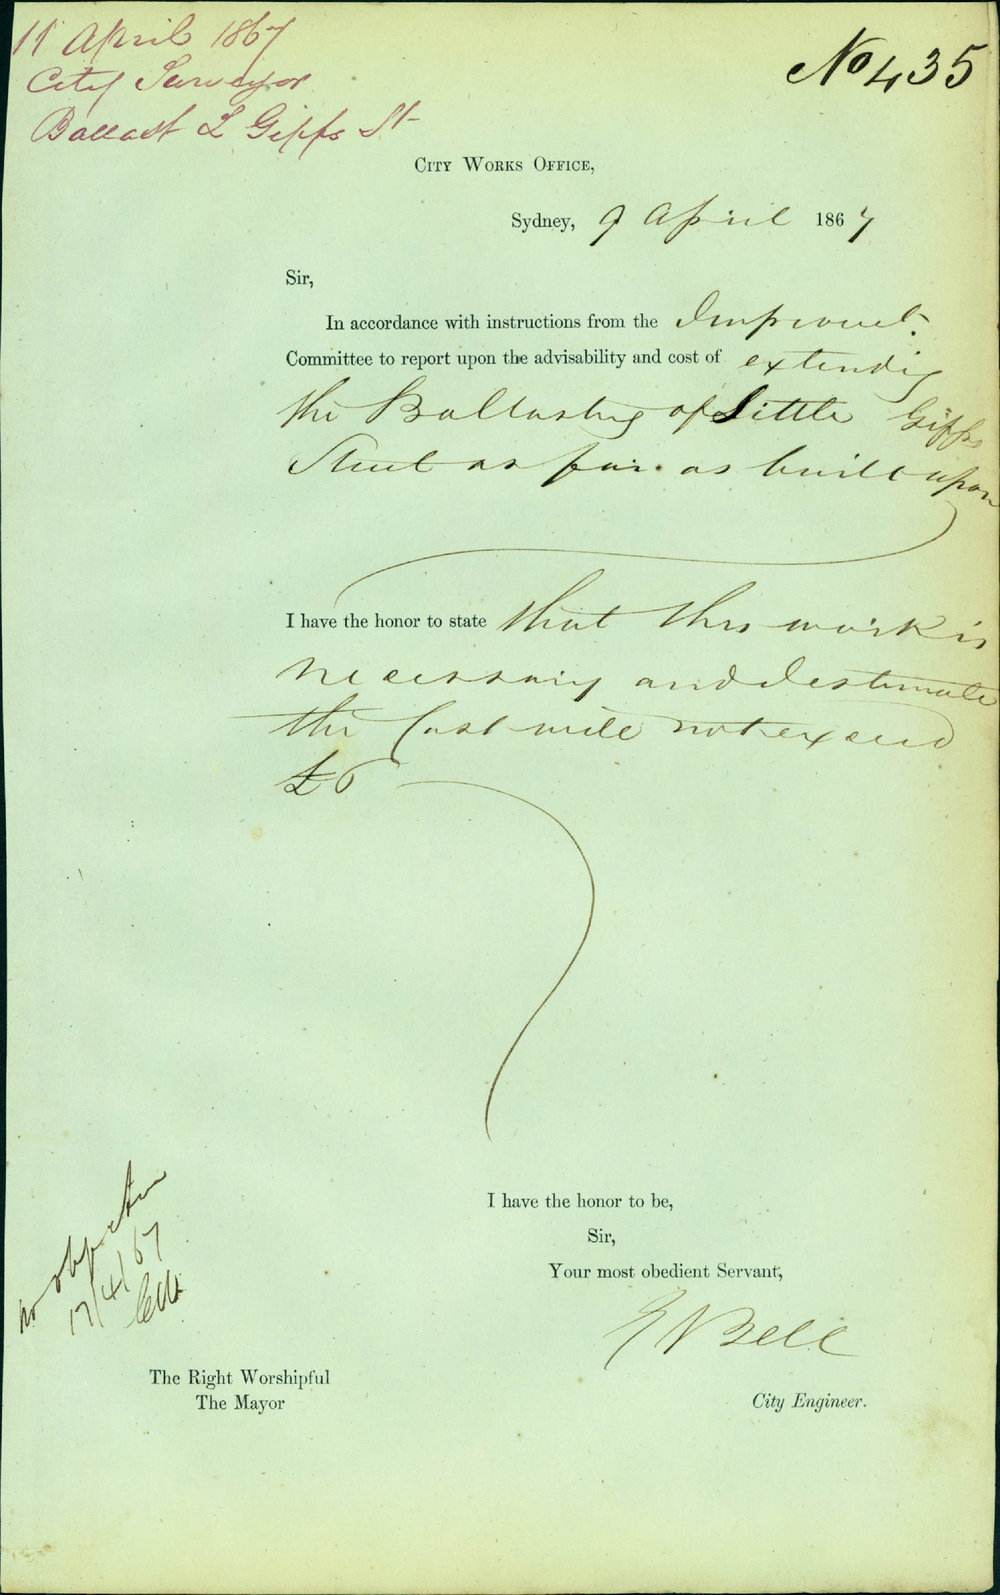 11 April 1867
City Surveyor
Ballast L Gipps St
No 435
City Works Office,
Sydney, 9 April 1867
Sir,
In accordance with instructions from the Improvet.
Committee to report upon the advisability and cost of extending
the Ballasting of Little Gipps
Street as far as built upon
I have the honor to state that this work is
necessary and I estimate
the Cost will not exceed
£6
I have the honor to be,
Sir,
Your most obedient Servant,
E Bell
no objection
17/4/67
The Right Worshipful
The Mayor
City Engineer.